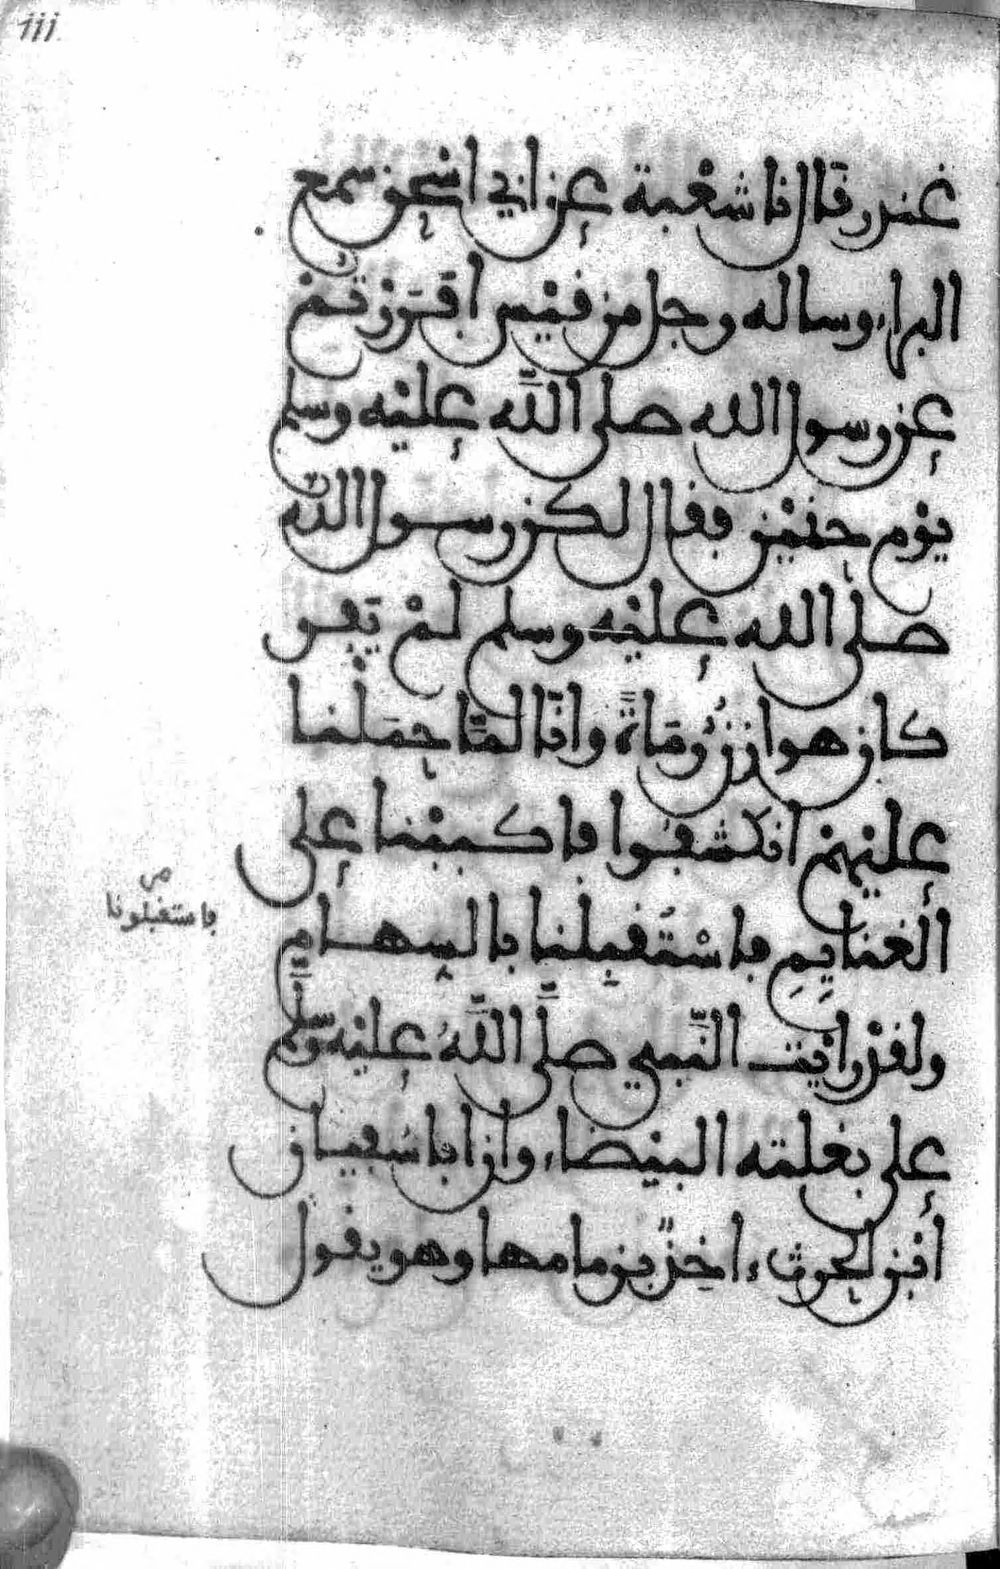 iii
غندر قال نا شعبة عن ابي اسحق سمع
البراء وساله رجل من قيس افررتم
عن رسول الله صلى الله عليه وسلم
يوم حنين فقال لكن رسول الله
صلى الله عليه وسلم لم يفر
كان هوازن رماة وانا لما حملنا
عليهم انكشفوا فاكببنا على
الغنايم فاستقبلنا بالسهام
فاستقبلونا
ولقد رايت النبي صلى الله عليه وسلم
على بغلته البيضاء وان ابا سفيان
ابن الحرث ءاخذ بزمامها وهو يقول